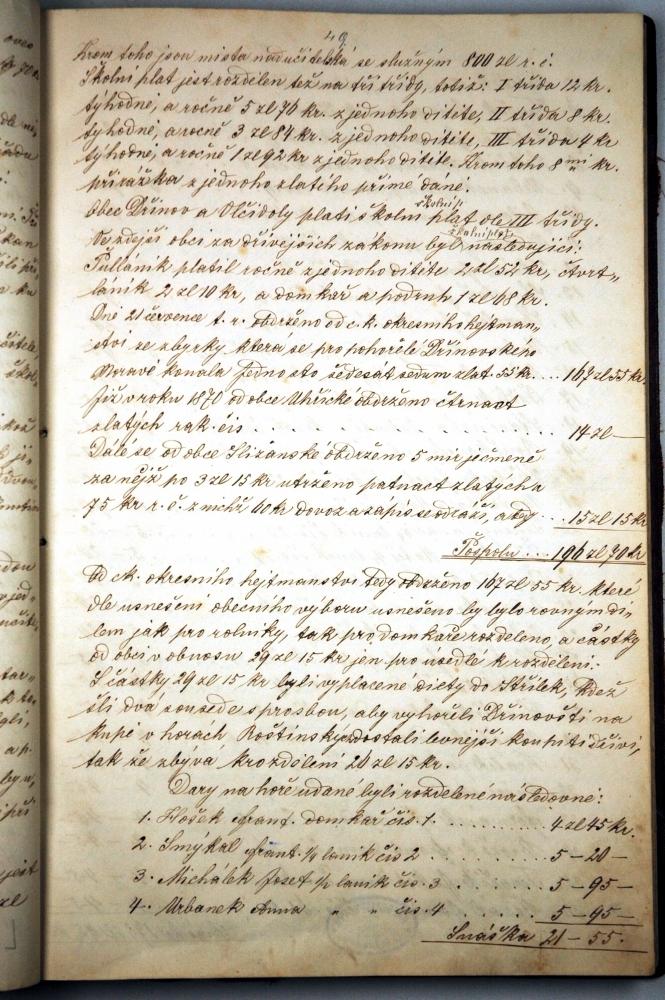 49
Krom toho jsou místa nadučitelská se služným 800 zl r. č.
Školní plat jest rozdělen též na tři třídy, totiž: I třída 12 kr.
týhodně, a ročně 5 zl 76 kr. z jednoho dítěte, II třída 8 kr.
týhodně, a ročně 3 zl 84 kr. z jednoho dítěte, III třída 4 kr
týhodně, a ročně 1 zl 92 kr z jednoho dítěte. Krom toho 8 mi kr.
přirážka z jednoho zlatého přímé daně.
Obec Dřínov a Vlčídoly platí školní plat dle III třídy.
Ve zdejší obci za dřívějších zákonů byl školní plat následující:
Pulláník platil ročně z jednoho dítěte 2 zl 52 kr, čtvrt-
laník 2 zl 10 kr, a domkař a podruh 1 zl 68 kr.
Dne 21 července t. r. obdrženo od c. k. okresního hejtman-
ství ze zbyrky která se pro pohořelé Dřínovského
Moravě konala Jednosto šedesát sedum zlat. 55 kr. .... 167 zl 55 kr.
Již v roku 1870 od obce Uhřické obdrženo čtrnact
zlatých rak. čís . . . . . . . . . . 14 zl —
Dále se od obce Slížanské obdrženo 5 mir ječmeně
za nějž po 3 zl 15 kr utrženo patnact zlatých a
75 kr r. č. z nichž 60 kr dovoz a zápis se odráží, a tedy ... 15 zl 15 kr
Pospolu ... 196 zl 70 kr
Od ck. okresního hejtmanství tedy obdrženo 167 zl 55 kr. které
dle usnešení obecního výboru usnešeno by bylo rovným dí-
lem jak pro rolníky, tak pro domkaře rozděleno, a částky
od obcí v obnosu 29 zl 15 kr jen pro úsedlé k rozdělení.
S částky 29 zl 15 kr byli vyplacené diety do Střílek, kdež
šli dva sousedé s prosbou, aby vyhořelí Dřínovští na
kupé v horách Roštinskych dostali levnější koupiti dříví,
tak že zbývá k rozdělení 20 zl 15 kr.
Dary na hoře udané byli rozdelené následovně:
1. Hošek Frant. domkař čís. 1 . . . . . . . . . 4 zl 45 kr.
2. Smýkal Frant. ¼ laník čís 2 . . . . . . . . 5 — 20 —
3. Michálek Josef ½ laník čís. 3 . . . . . . . 5 — 95 —
4. Urbanek Anna „ „ čís. 4 . . . . . . 5 — 95 —
Snáška 21 — 55.